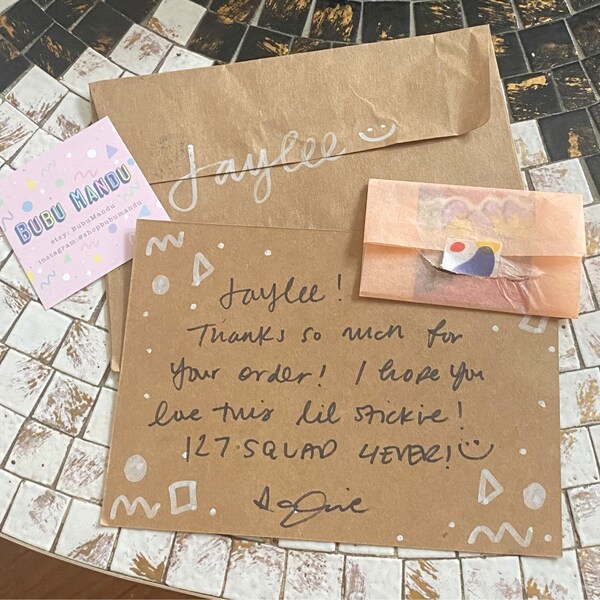 Jaylee
BUBU MANDU
etsy: bubuMandu
instagram: @shopbubumandu
Jaylee!
Thanks so much for
your order! I hope you
love this lil stickie!
127 SQUAD 4EVER!